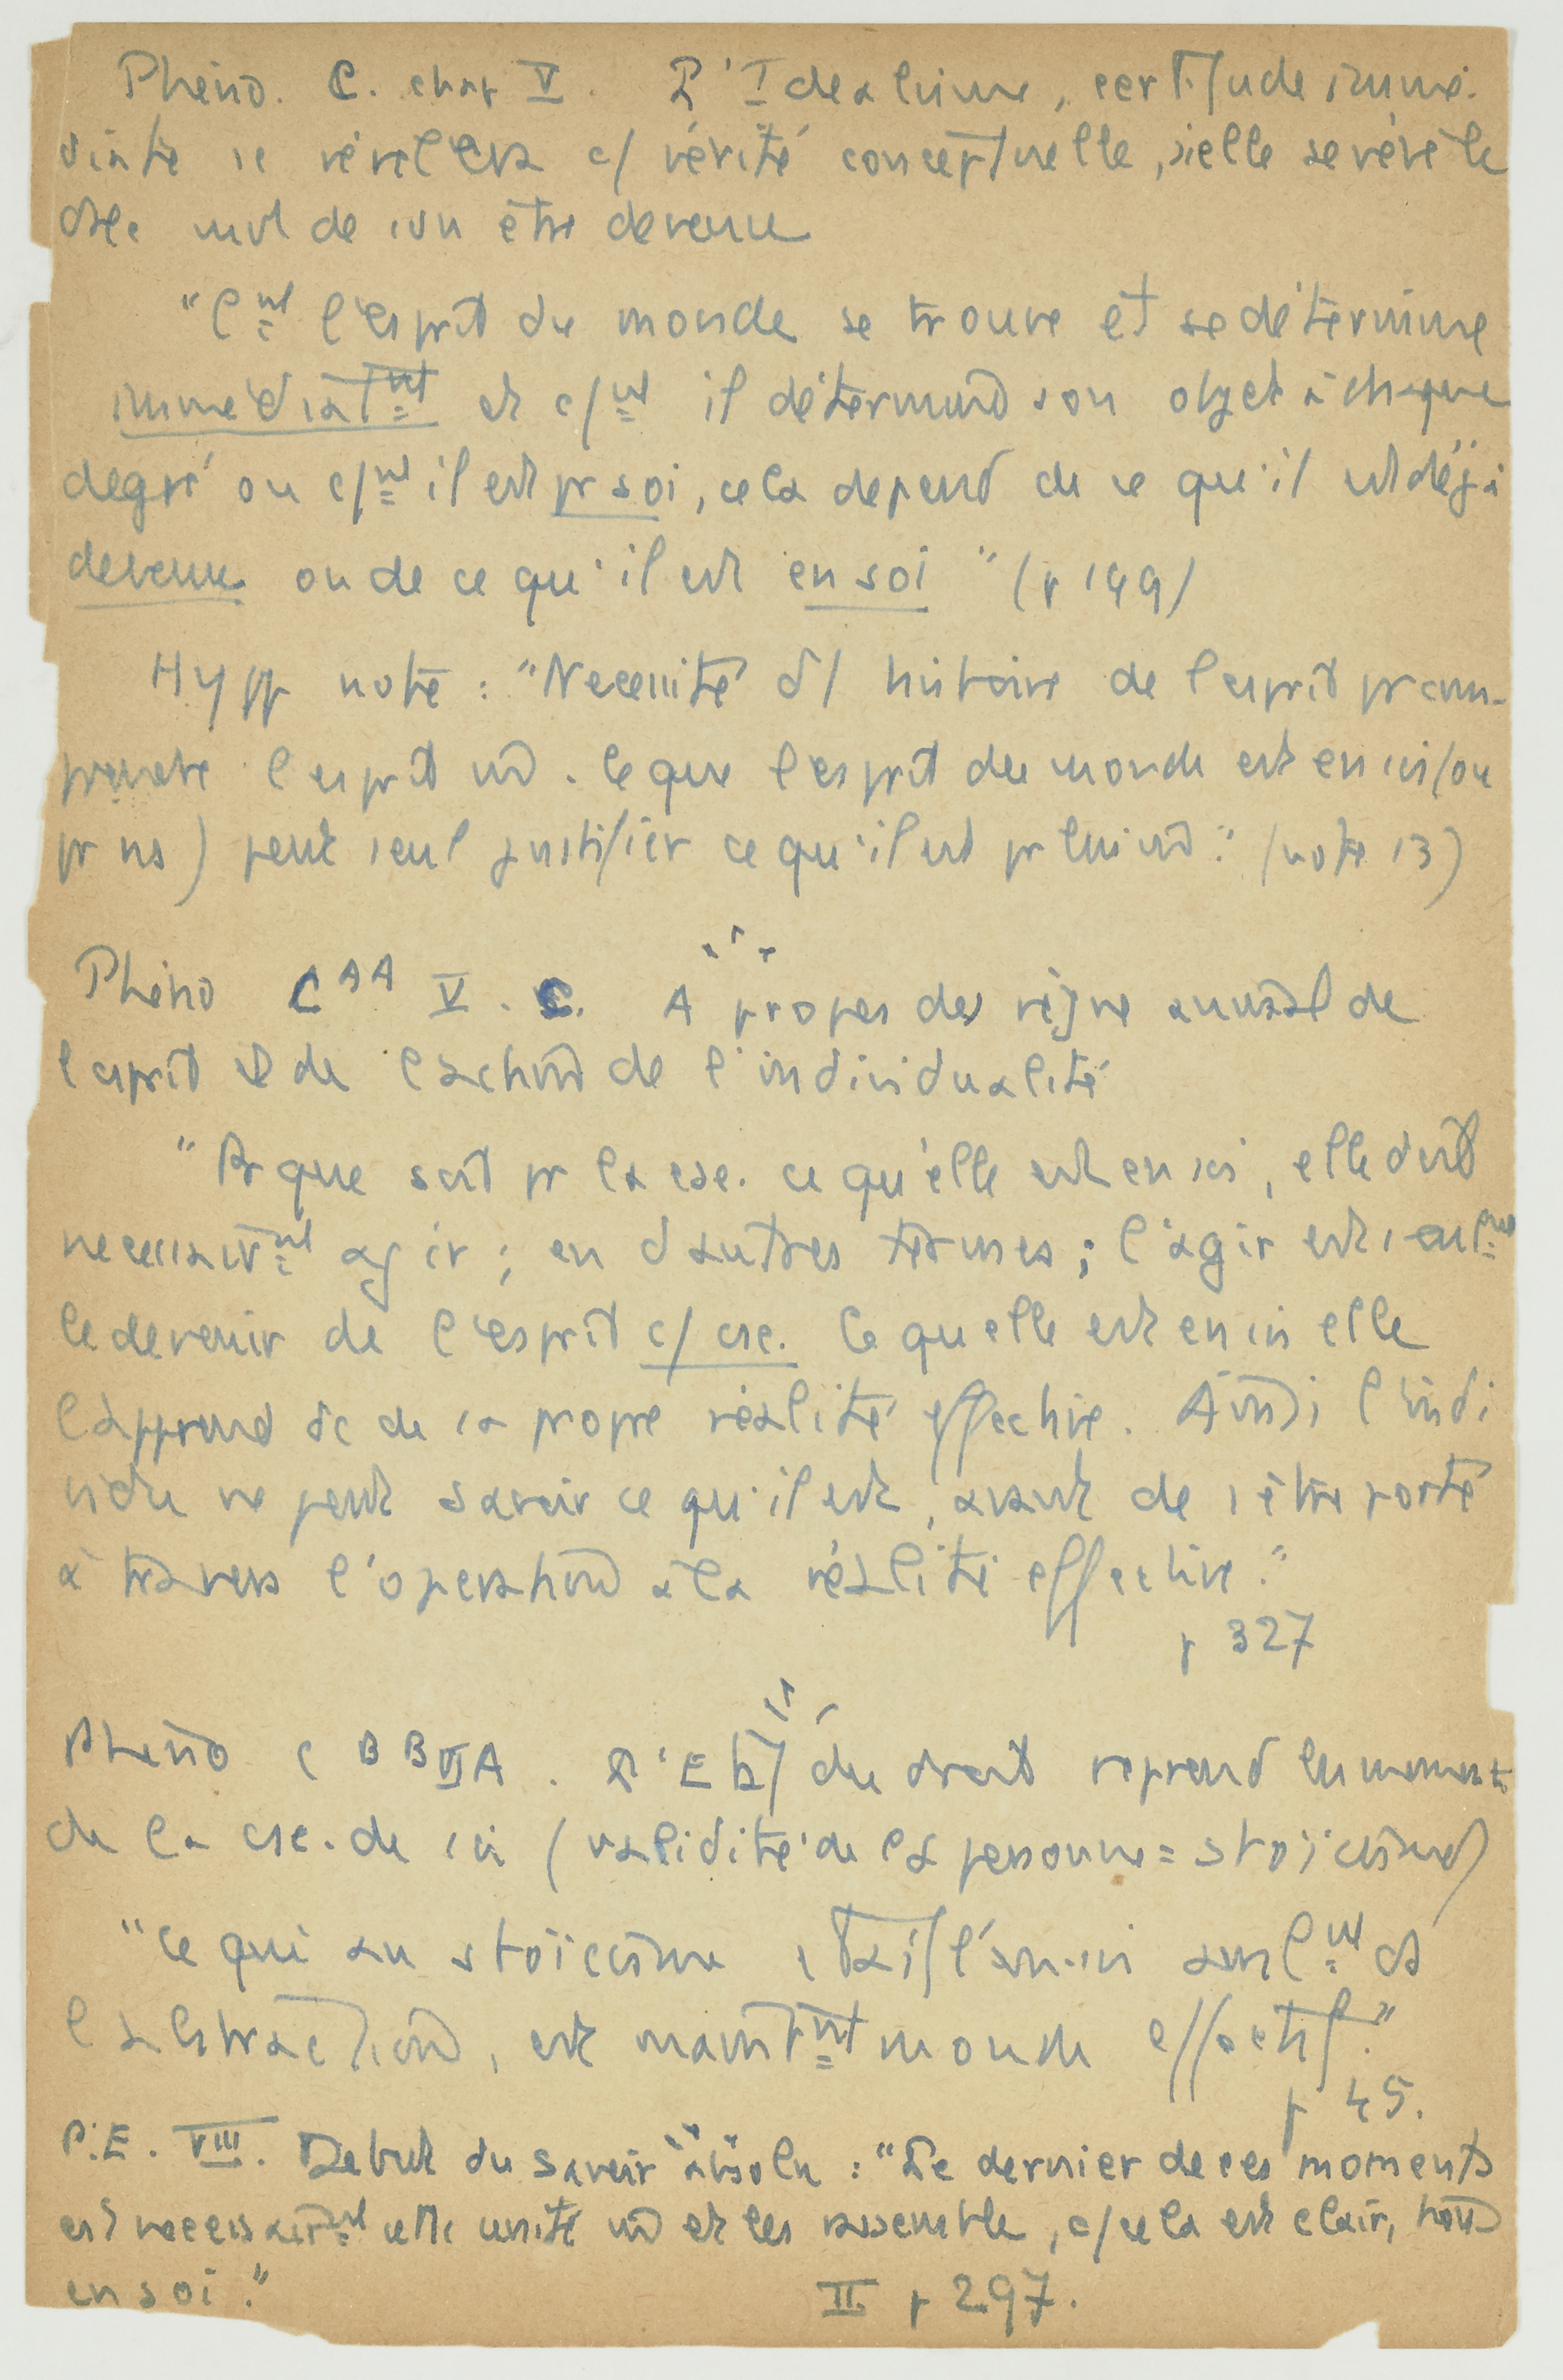 Phéno. C. chap V. L'Idealisme, certitude immé-
diate se révélera c/ vérité conceptuelle, si elle se révèle
ds le mvt de son être devenu
"C/nt l'esprit du monde se trouve et se détermine
immédiatnt et c/nt il détermine son objet à chaque
degré ou c/nt il est pr soi, cela depend de ce qu'il est déjà
devenu ou de ce qu'il est en soi" (p 199)
Hypp note : "Necessité d/ histoire de l'esprit pr com-
prendre l'esprit . Ce que l'esprit du monde est en soi (ou
pr ns) peut seul justifier ce qu'il est pr lui." (note 13)
Phéno C AA V. C. A propos des règne animal de
l'esprit et de l'action de l'individualité
"Pr que soit pr la cse. ce qu'elle est en soi, elle doit
necessairnt agir ; en d'autres termes ; l'agir est seulnt
le devenir de l'esprit c/ cse. Ce qu'elle est en soi elle
l'apprend dc de sa propre réalité effective. Ainsi l'indi
vidu ne peut savoir ce qu'il est, avant de s'être porté
à travers l'operation à la réalité effective."
p 327
Phéno C BB VI A. L'Etat du droit reprend les moments
de la cse. de soi (validité de la personne = stoïcisme)
"Ce qui au stoïcisme était l'en-soi seulnt ds
l'abstraction, est maintnt monde effectif."
p 45.
P.E. VIII. Debut du savoir absolu : "Le dernier de ces moments
est necessairnt cette unité et les rassemble, c/ cela est clair, tous
en soi." II p 297.